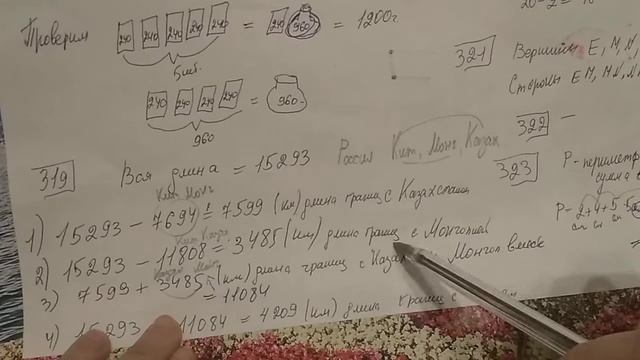 Проверим 240 240 240 240 240 = 240 960 = 1200г.
5 шт.
240 240 240 240 = 960
960
321 Вершины E, M, N,
Стороны EM, MN, N
322 —
319 Вся длина = 15293 Россия Кит, Монг, Казах
323 P-периметр
сумма
P- 2+4+5
см см см
Кит Монг
1) 15293 - 7694 = 7599 (км) длина границ с Казахстаном
2) 15293 - 11808 = 3485 (км) длина границ с Монголией
3) 7599 + 3485 (км) длина границ с Казах Монгол вместе
= 11084
4) 15293 11084 = 4209 (км) длина границ с